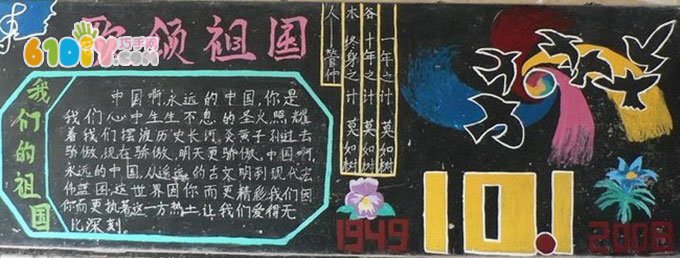 歌颂祖国
61DIY巧手网
我们的祖国
中国啊,永远的中国,你是
我们心中生生不息的圣火照耀
着我们摆渡历史长河,炎黄子孙过去
骄傲,现在骄傲,明天更骄傲,中国啊,
永远的中国,从遥远的古文明到现代宏
伟蓝图,这世界因你而更精彩我们因
你而更执着这一方热土让我们爱得无
比深刻.
一年之计 莫如树
谷 十年之计 莫如树
木 终身之计 莫如树
人——管仲
1949
10.1
2008